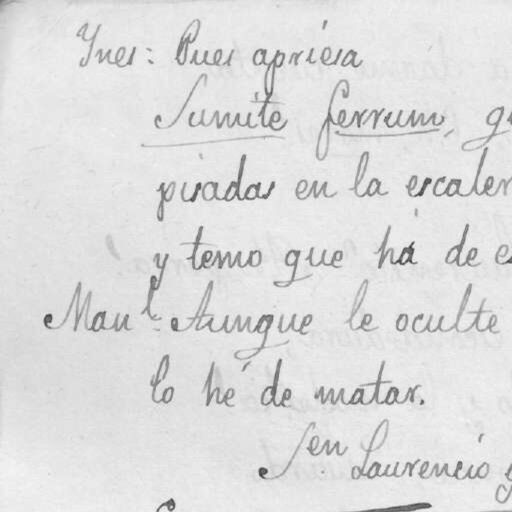 Ynes: Pues apriesa
Sumite ferrum, q
pisadas en la escaler
y temo que há de e
Man.l Aunque le oculte
lo hé de matar.
Sen Laurencio y